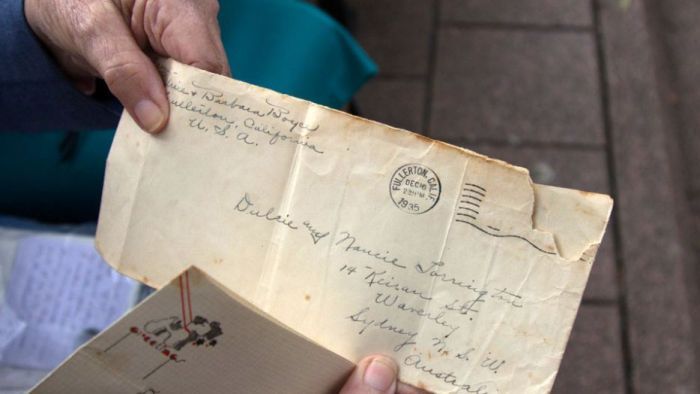 & Barbara
Fullerton, California
U.S.A.
FULLERTON, CALIF.
DEC 16
PM
1935
Dulcie and Nancie Torrington
14 Kieran St.
Waverly
Sydney N.S.W.
Australia